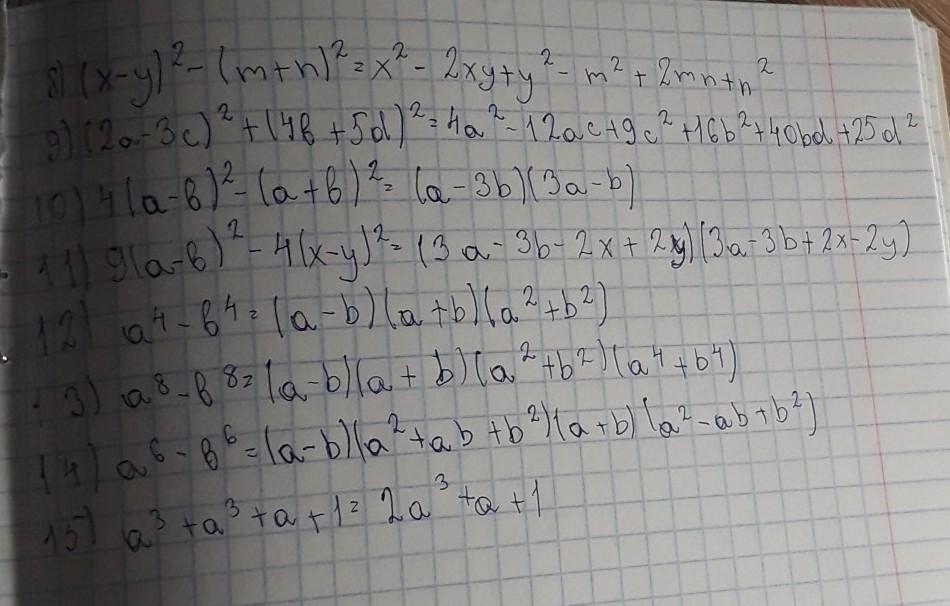 8) (x-y)² - (m+n)² = x² - 2xy + y² - m² + 2mn + n²
9) (2a-3c)² + (4в + 5d)² = 4a² - 12ac + 9c² + 16b² + 40bd + 25d²
10) 4(a-в)² - (a+в)² = (a-3b)(3a-b)
11) 9(a-в)² - 4(x-y)² = (3a - 3b - 2x + 2y)(3a-3b+2x-2y)
12) a⁴ - в⁴ = (a-b)(a+b)(a²+b²)
13) a⁸ - в⁸ = (a-b)(a+b)(a²+b²)(a⁴+b⁴)
14) a⁶ - в⁶ = (a-b)(a²+ab+b²)(a+b)(a²-ab+b²)
15) a³ + a³ + a + 1 = 2a³ + a + 1